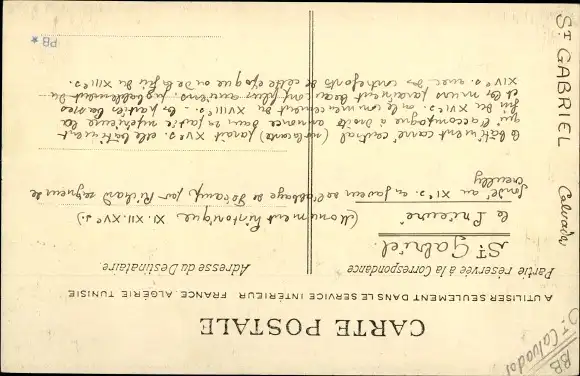 CARTE POSTALE
A UTILISER SEULEMENT DANS LE SERVICE INTÉRIEUR FRANCE, ALGÉRIE, TUNISIE
Partie réservée à la Correspondance
Adresse du Destinataire.
St Gabriel.
le Prieuré (Monument historique XI. XII. XVe s.)
fondé au XIe s. en faveur de l'abbaye de Fécamp par Richard seigneur de
Creully
le bâtiment carré central (surtout) paraît XVe s. elle bâtiment
qui l'accompagne à droite annonce dans sa partie inférieure la
fin du XVe s. ou le commencement du XVIIIe s. - les parties basses
et les murs paraissent beaucoup plus anciens, probablement du
XIVe s. avec des contreforts de cette époque ou de la fin du XIIIe s.
PB *
ST GABRIEL Calvados
BB
Dt Calvados